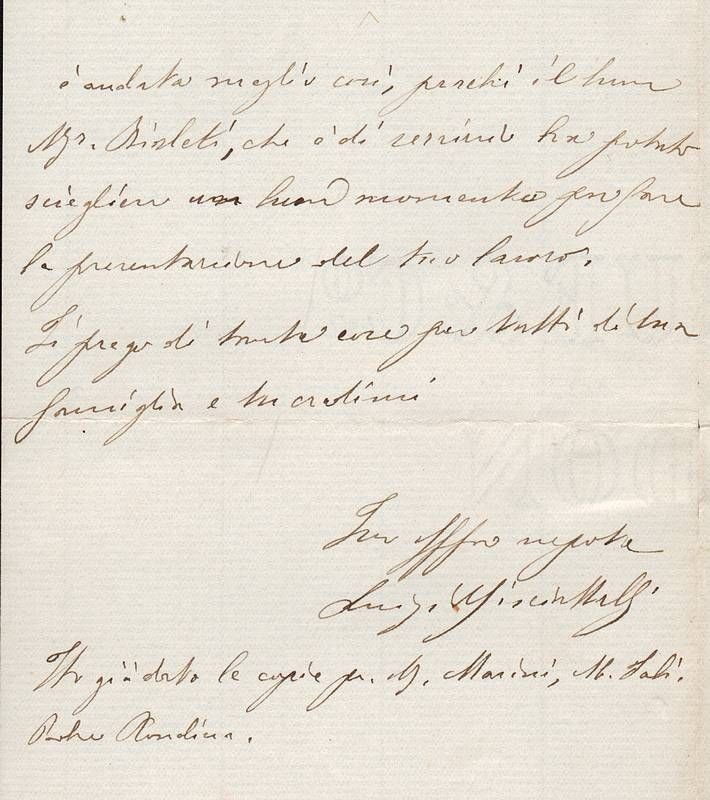 è andata meglio così, perchè il buon
Mgr. Bisleti, che è di servizio ha potuto
sciegliere un buon momento per fare
la presentazione del tuo lavoro.
Ti prego di tante cose per tutti di tua
famiglia e tu credimi
Tuo affmo nepote
Luigi Misciattelli
Ho già dato le copie per M. Marini, M. Sali.
Padre Rondina.